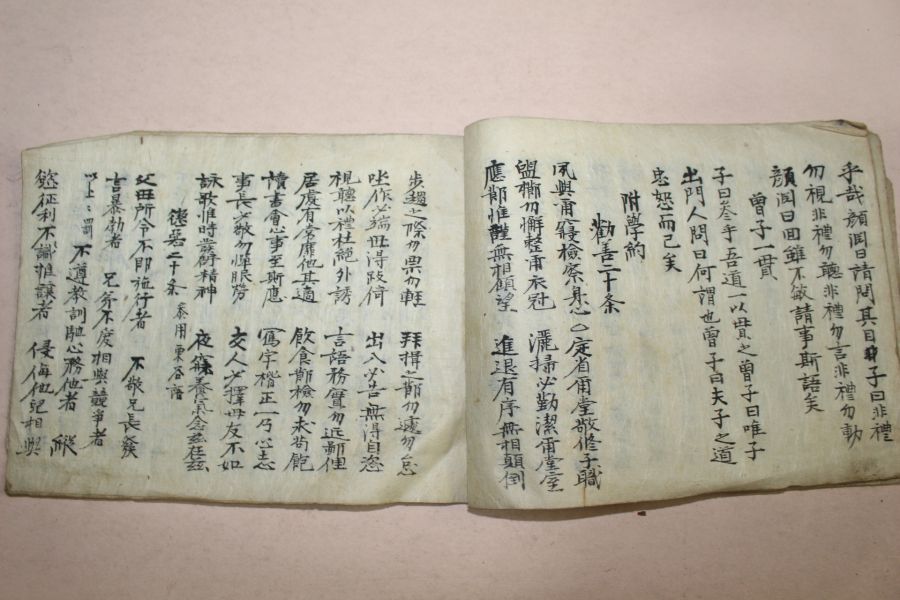 乎哉顔淵曰請問其目子曰非禮
勿視非禮勿聽非禮勿言非禮勿動
顔淵曰回雖不敏請事斯語矣
曾子一貫
子曰參乎吾道一以貫之曾子曰唯子
出門人問曰何謂也曾子曰夫子之道
忠恕而已矣
附學約
勸善二十条
夙興甭寢檢察身心 定省甭堂敬修子職
盥櫛勿懈整甭衣冠 灑掃必勤潔甭堂室
應斯惟謹無相顧望 進退有序無相顛倒
步趨之際勿票勿輕 拜揖之斯勿遽勿怠
坐作必端毋得跛倚 出入必告無得自恣
視聽以禮杜絶外誘 言語務實勿近鄙俚
居處有常靡他其適 飲食斯檢勿求苟飽
讀書會心事至斯應 寫字楷正一乃心志
事長必敬勿憚服勞 交人必擇毋友不如
詠歌惟時發舒精神 夜寐養氣念玆在玆
懲惡二十条 泰用東谷語
父母所令不即施行者 不敬兄長發
言暴勃者 兄弟不度相與競爭者
以上上罰 不遵教訓馳心務他者 縱
慾征利不識惟謨者 侵侮他記相與